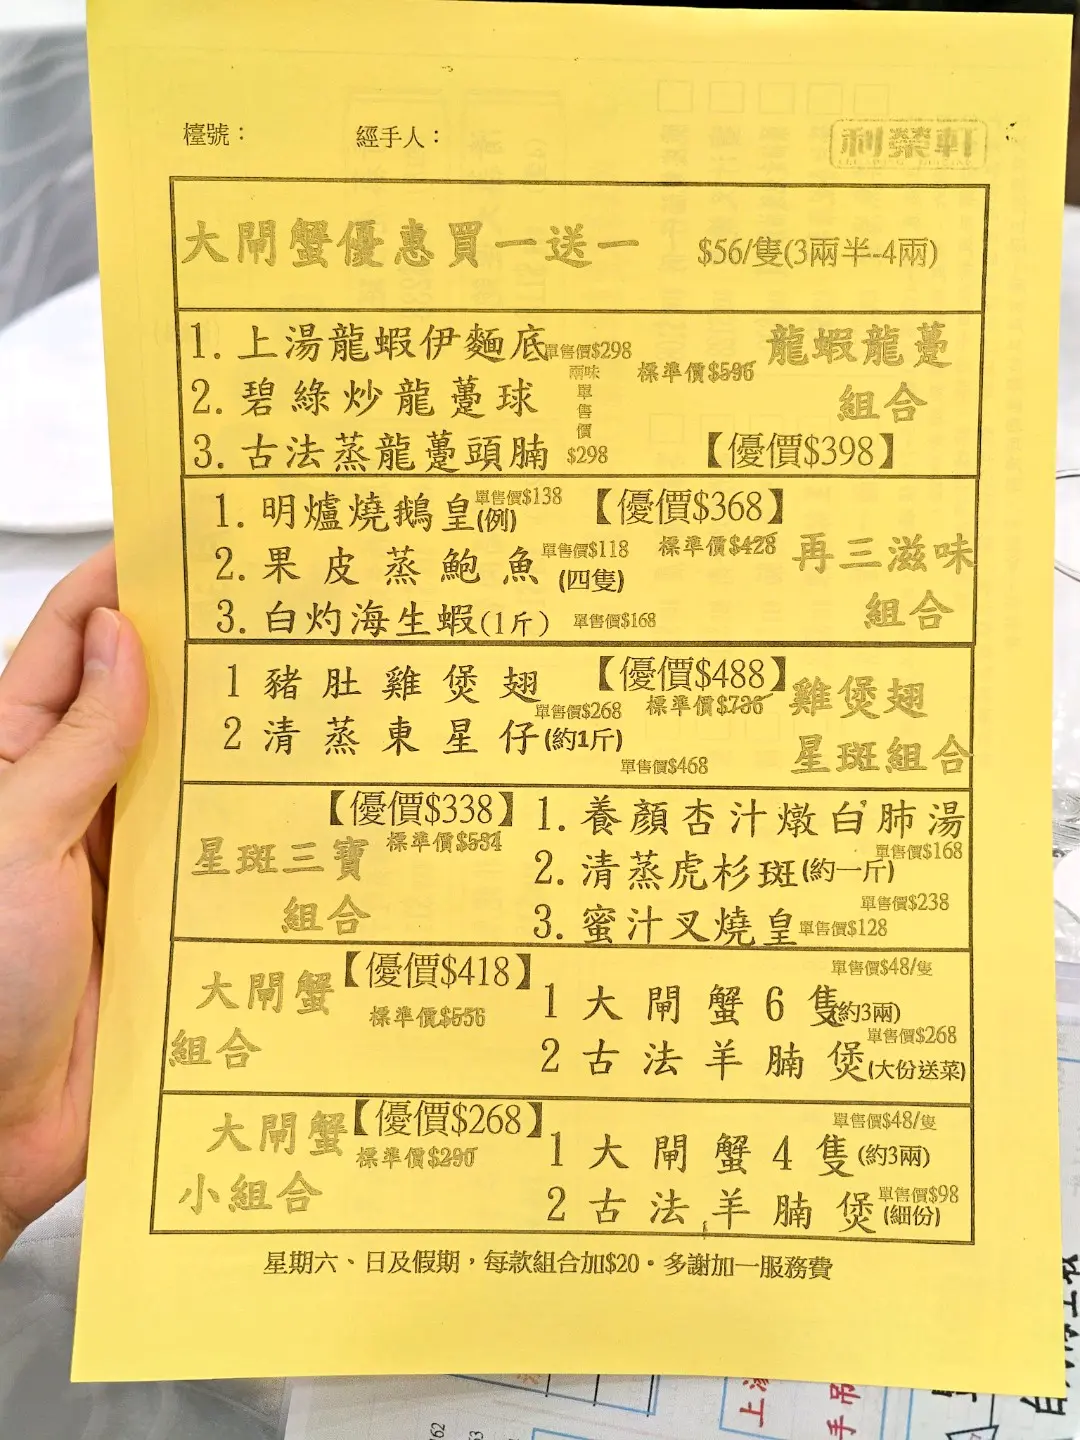 檯號：
經手人：
利榮軒
大閘蟹優惠買一送一 $56/隻(3兩半-4兩)
1. 上湯龍蝦伊麵底 單售價$298
2. 碧綠炒龍躉球
3. 古法蒸龍躉頭腩
兩味單售價$298
標準價$596
龍蝦龍躉
組合
【優價$398】
1. 明爐燒鵝皇(例) 單售價$138
2. 果皮蒸鮑魚(四隻) 單售價$118
3. 白灼海生蝦(1斤) 單售價$168
【優價$368】
標準價$428
再三滋味
組合
1 豬肚雞煲翅 單售價$268
2 清蒸東星仔(約1斤) 單售價$468
【優價$488】
標準價$736
雞煲翅
星斑組合
【優價$338】
標準價$534
星斑三寶
組合
1. 養顏杏汁燉白肺湯 單售價$168
2. 清蒸虎杉斑(約一斤) 單售價$238
3. 蜜汁叉燒皇 單售價$128
大閘蟹
組合
【優價$418】
標準價$556
1 大閘蟹6隻(約3兩) 單售價$48/隻
2 古法羊腩煲(大份送菜) 單售價$268
大閘蟹
小組合
【優價$268】
標準價$290
1 大閘蟹4隻(約3兩) 單售價$48/隻
2 古法羊腩煲(細份) 單售價$98
星期六、日及假期，每款組合加$20。多謝加一服務費